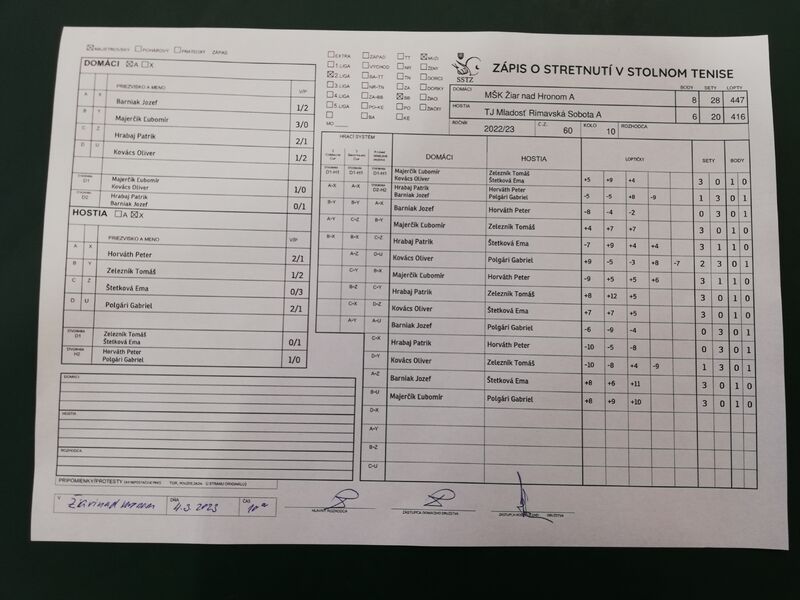 MAJSTROVSKÝ POHÁROVÝ PRIATEĽSKÝ ZÁPAS
DOMÁCI A X
PRIEZVISKO A MENO V/P
A X Barniak Jozef 1/2
B Y Majerčík Ľubomír 3/0
C Z Hrabaj Patrik 2/1
D U Kovács Oliver 1/2
ŠTVORHRA D1 Majerčík Ľubomír 1/0
Kovács Oliver
ŠTVORHRA D2 Hrabaj Patrik 0/1
Barniak Jozef
HOSTIA A X
PRIEZVISKO A MENO V/P
A X Horváth Peter 2/1
B Y Zelezník Tomáš 1/2
C Z Štetková Ema 0/3
D U Polgári Gabriel 2/1
ŠTVORHRA D1 Zelezník Tomáš 0/1
Štetková Ema
ŠTVORHRA H2 Horváth Peter 1/0
Polgári Gabriel
DOMÁCI
HOSTIA
ROZHODCA
PRIPOMIENKY/PROTESTY
V Žiari nad Hronom DŇA 4.3.2023 ČAS 10
HLAVNÝ ROZHODCA
ZÁSTUPCA DOMÁCEHO DRUŽSTVA
EXTRA ZÁPAD TT MUŽI
1. LIGA VÝCHOD NR ŽENY
2. LIGA BA-TT TN DORCI
3. LIGA NR-TN ZA DORKY
4. LIGA ZA-BB BB ŽIACI
5. LIGA PO-KE PO ŽIAČKY
BA KE
MO
SSTZ
ZÁPIS O STRETNUTÍ V STOLNOM TENISE
DOMÁCI MŠK Žiar nad Hronom A BODY 8 SETY 28 LOPTY 447
HOSTIA TJ Mladosť Rimavská Sobota A 6 20 416
ROČNÍK 2022/23 Č.Z. 60 KOLO 10 ROZHODCA
HRACÍ SYSTÉM
DOMÁCI HOSTIA LOPTIČKY SETY BODY
D1-H1 D1-H1 D1-H1 Majerčík Ľubomír Zelezník Tomáš +5 +9 +4 3 0 1 0
Kovács Oliver Štetková Ema
A-X A-X D2-H2 Hrabaj Patrik Horváth Peter -5 -5 +8 -9 1 3 0 1
Barniak Jozef Polgári Gabriel
B-Y B-Y A-X Barniak Jozef Horváth Peter -8 -4 -2 0 3 0 1
A-Y C-Z B-Y Majerčík Ľubomír Zelezník Tomáš +4 +7 +7 3 0 1 0
B-X B-X C-Z Hrabaj Patrik Štetková Ema -7 +9 +4 +4 3 1 1 0
A-Z D-U Kovács Oliver Polgári Gabriel +9 -5 -3 +8 -7 2 3 0 1
C-Y B-X Majerčík Ľubomír Horváth Peter -9 +5 +5 +6 3 1 1 0
B-Z C-Y Hrabaj Patrik Zelezník Tomáš +8 +12 +5 3 0 1 0
C-X D-Z Kovács Oliver Štetková Ema +7 +7 +5 3 0 1 0
A-Y A-U Barniak Jozef Polgári Gabriel -6 -9 -4 0 3 0 1
C-X Hrabaj Patrik Horváth Peter -10 -5 -8 0 3 0 1
D-Y Kovács Oliver Zelezník Tomáš -10 -8 +4 -9 1 3 0 1
A-Z Barniak Jozef Štetková Ema +8 +6 +11 3 0 1 0
B-U Majerčík Ľubomír Polgári Gabriel +8 +9 +10 3 0 1 0
D-X
A-Y
B-Z
C-U